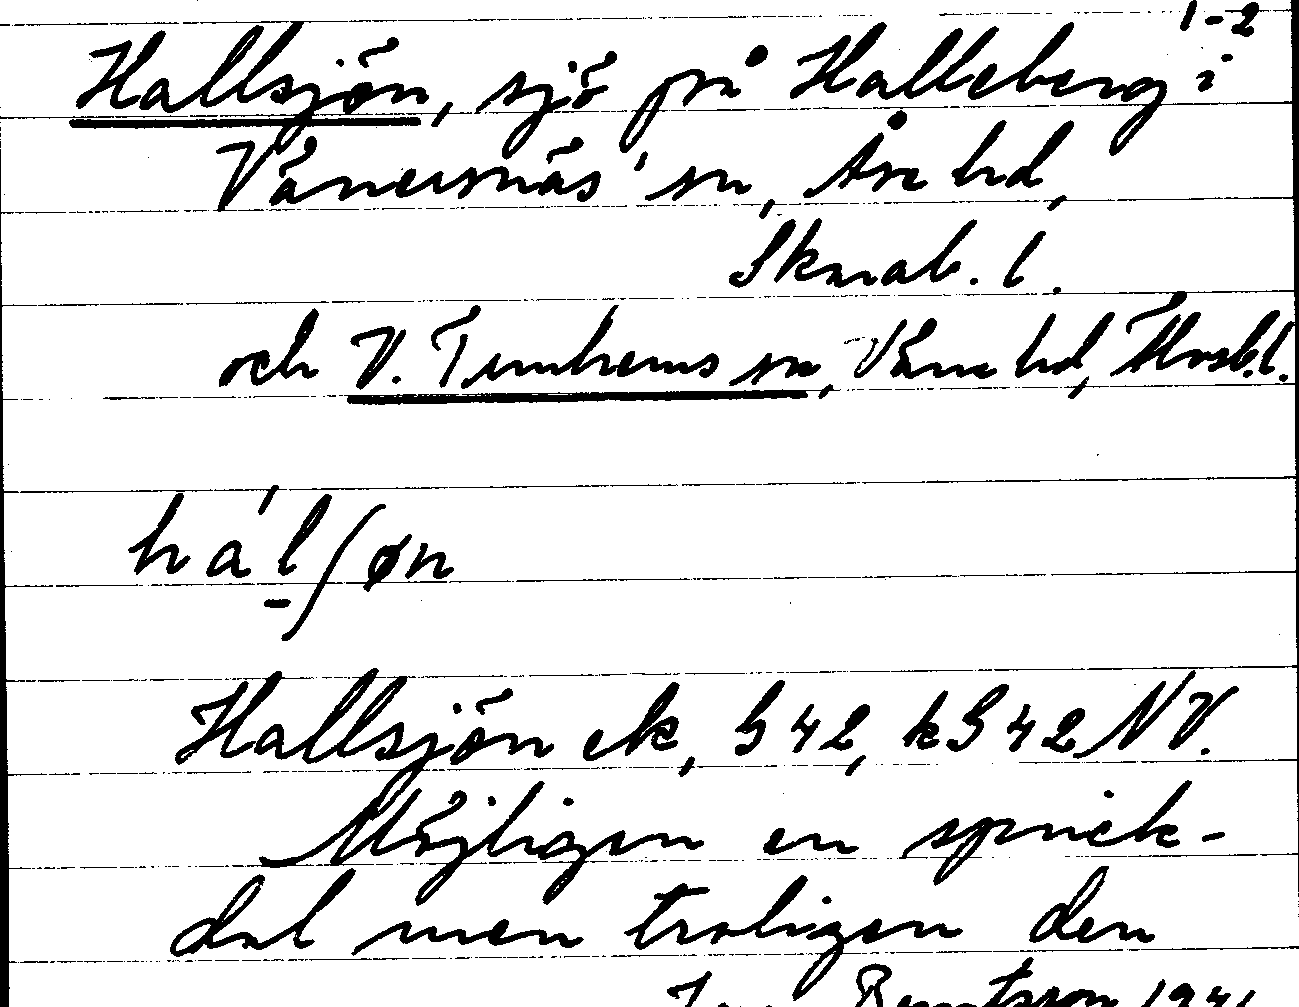 1-2
Hallsjön, sjö på Halleberg i
Vänersnäs' sn, Åse hd,
Skarab. l.
och V. Tunhems sn, Väne hd, Älvsb.l.
há́lʃøn
Hallsjön ek, G 42, kG 42 NV.
Möjligen en sprick-
dal men troligen den
Bengtsson 1941